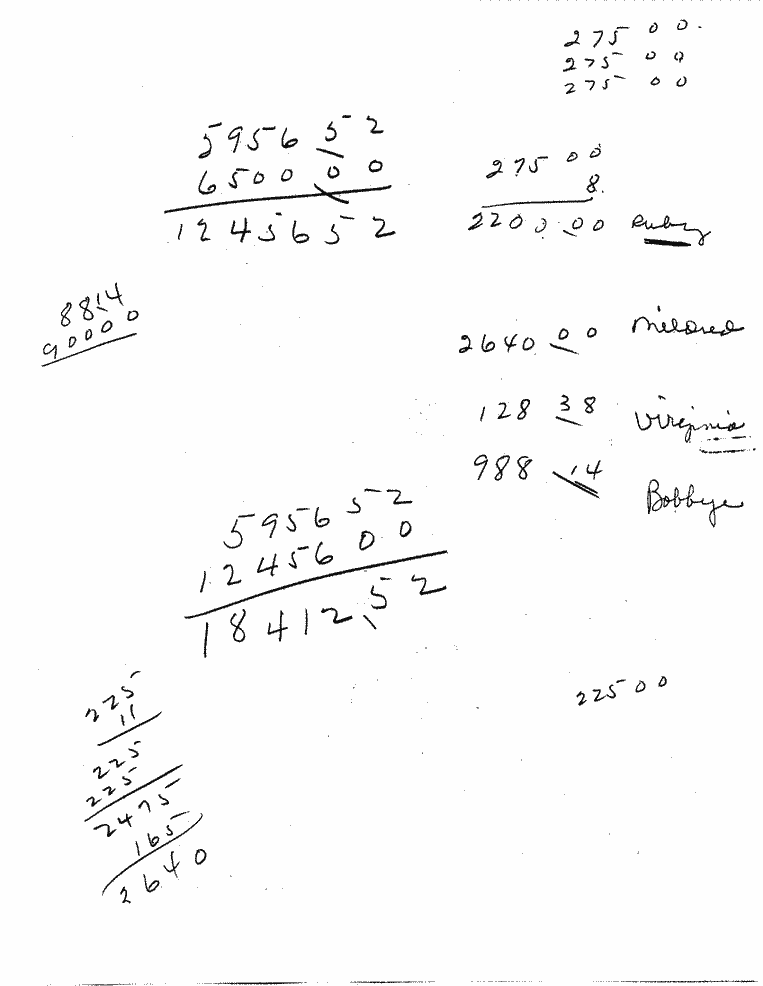 275 00
275 00
275 00
5956 52
6500 00
12456 52
275 00
8
2200.00 Ruby
88.14
900.00
2640 00 Mildred
128 38 Virginia
988.14 Bobbye
5956 52
12456 00
18412.52
225 00
225
11
225
225
2475
165
2640